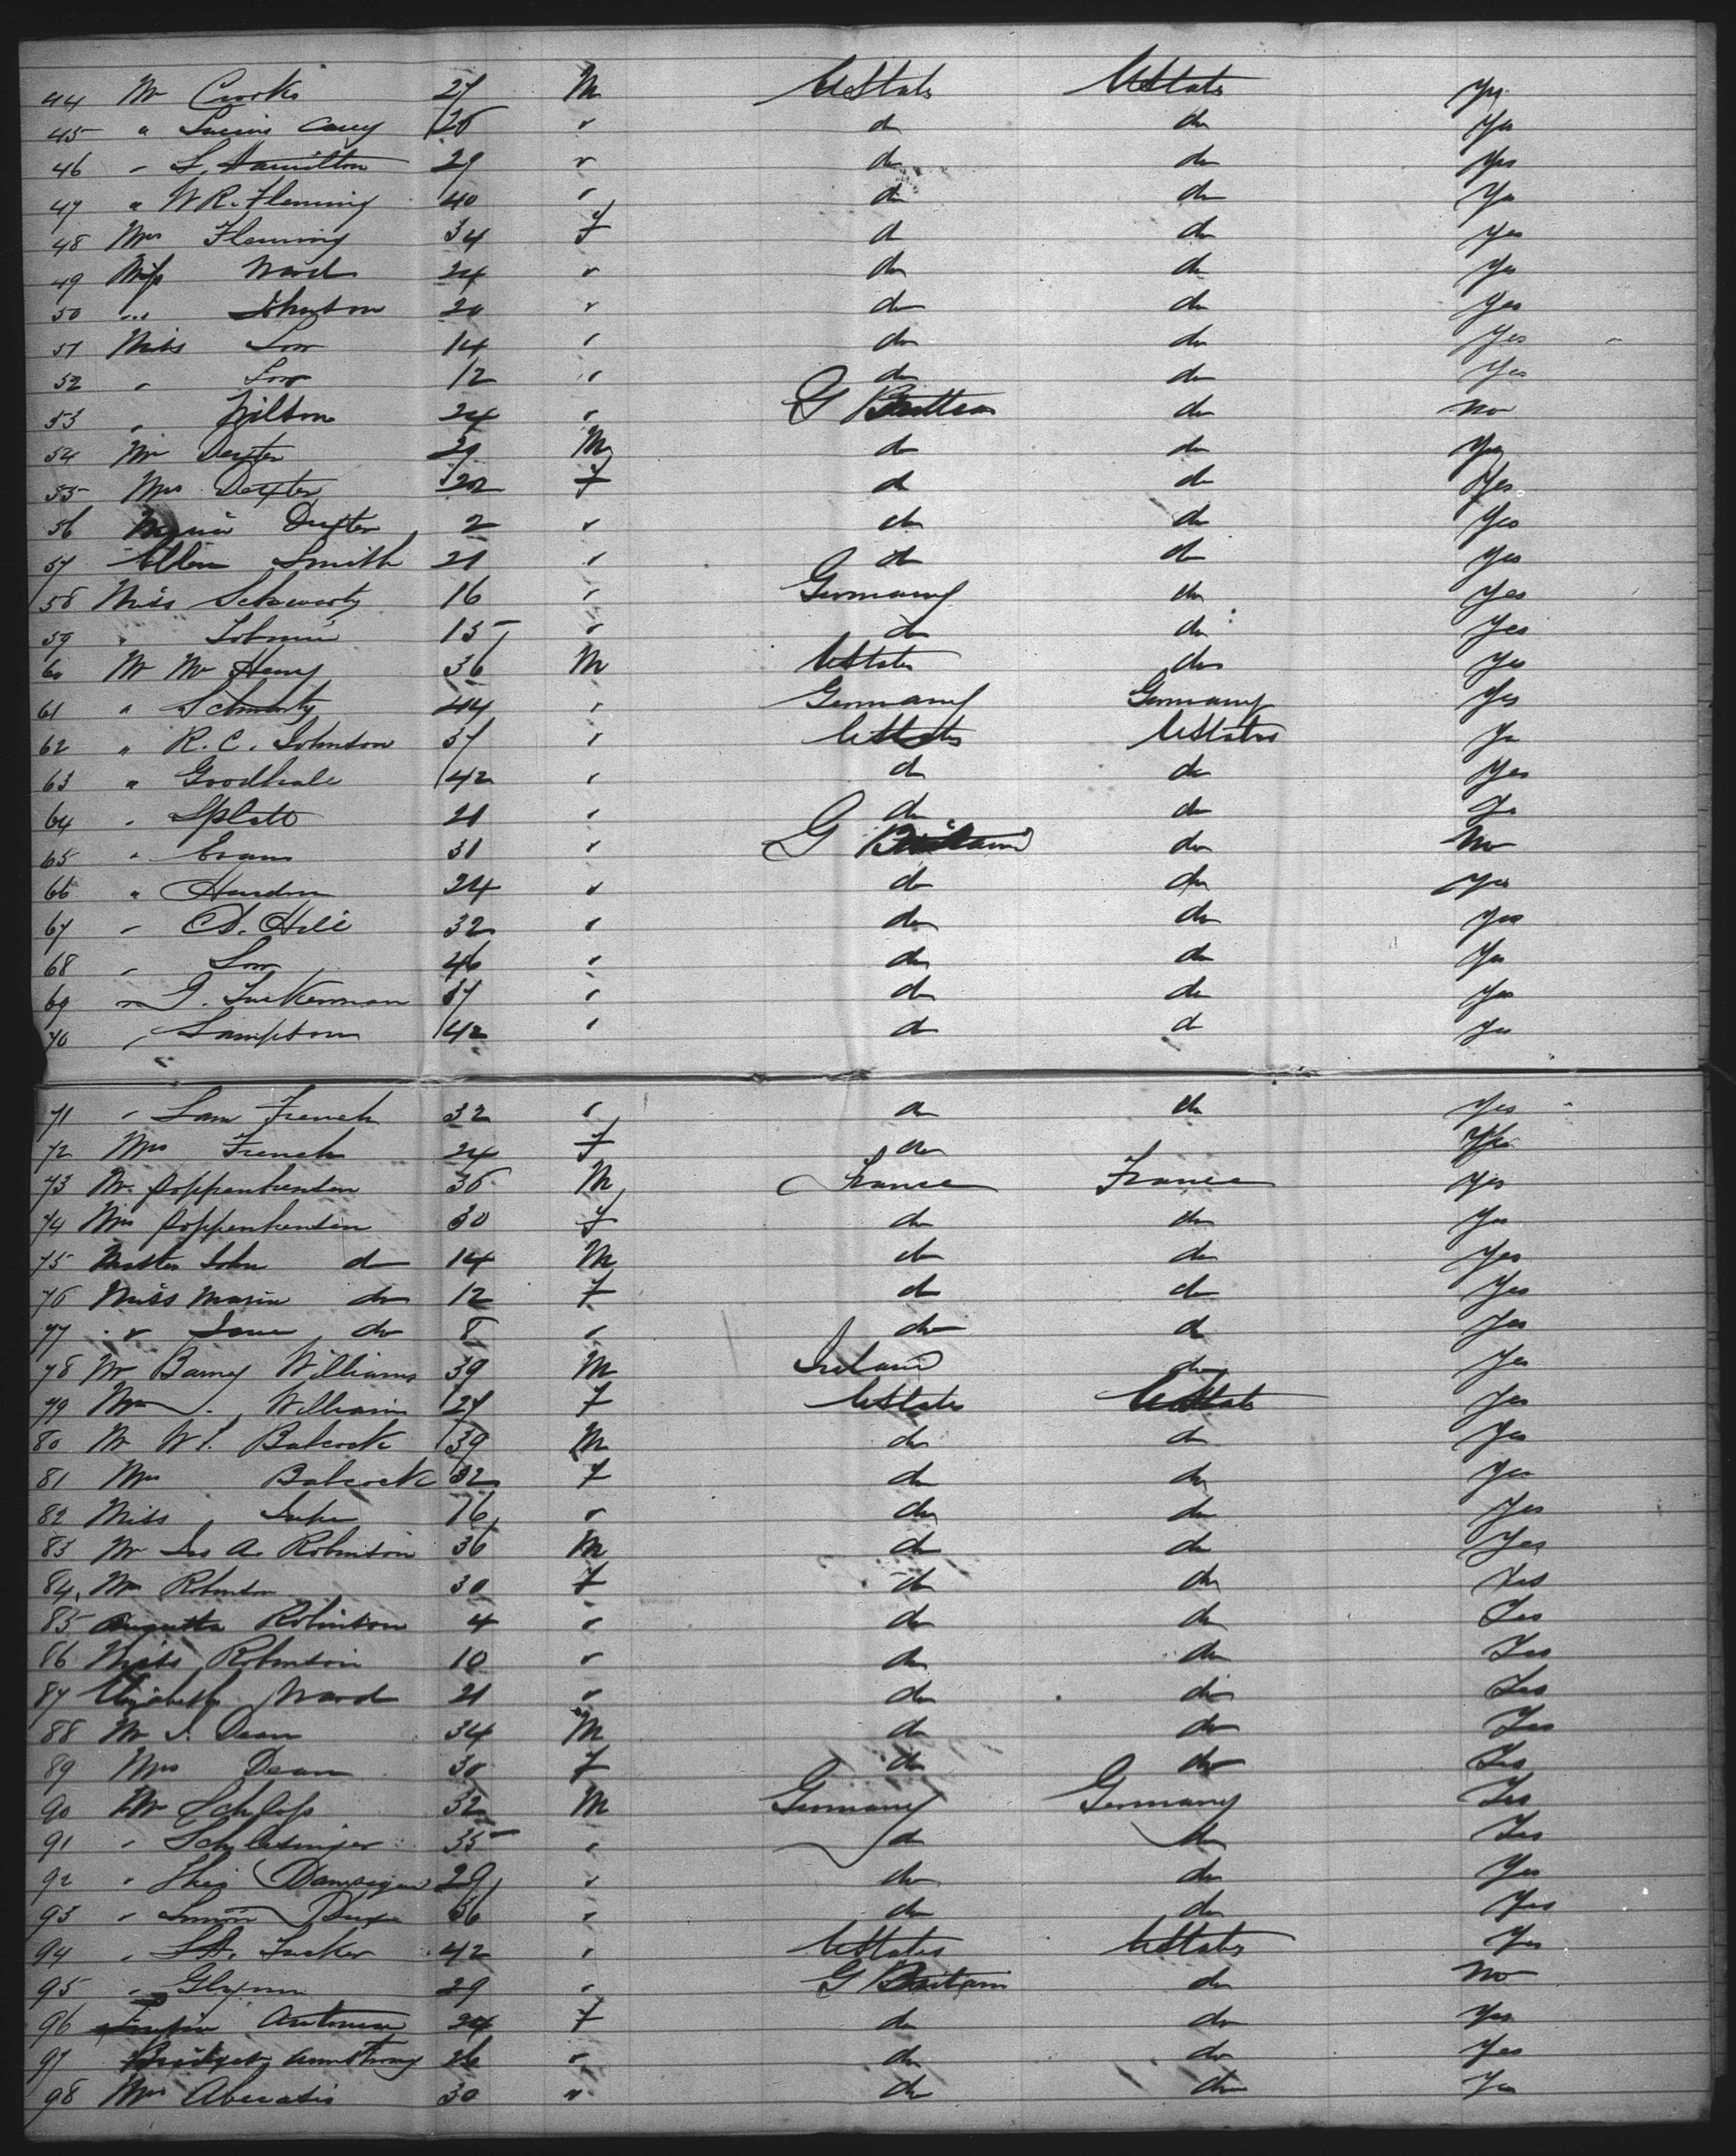 44 Mr Crooks 27 M UStates UStates Yes
45 " Lucius Carey 25 " do do Yes
46 " S. Hamilton 29 " do do Yes
47 " W R. Fleming 40 " do do Yes
48 Mrs Fleming 34 F do do Yes
49 Miss Ward 24 " do do Yes
50 " Johnston 20 " do do Yes
51 Miss Low 14 " do do Yes
52 " Low 12 " do do Yes
53 " Wilson 24 " G Brittan do No
54 Mr Dexter 29 M do do Yes
55 Mrs Dexter 22 F do do Yes
56 Dexter 2 " do do Yes
57 Ellen Smith 21 " do do Yes
58 Miss Schwartz 16 " Germany do Yes
59 " 15 " do do Yes
60 Mr Mc Henry 36 M UStates do Yes
61 " Schwartz 44 " Germany Germany Yes
62 " R. C. Johnson 37 " UStates UStates Yes
63 " Goodhale 42 " do do Yes
64 " Splatt 21 " do do Yes
65 " Evans 31 " G Britain do No
66 " 24 " do do Yes
67 " D. Hill 32 " do do Yes
68 " Low 46 " do do Yes
69 " J. Tuckerman 37 " do do Yes
70 " Sampson 42 " do do Yes
71 " Sam French 32 " do do Yes
72 Mrs French 24 F do Yes
73 Mr Poppenheuten 36 M France France Yes
74 Mrs Poppenheuten 30 F do do Yes
75 Master John do 14 M do do Yes
76 Miss Maria do 12 F do do Yes
77 " Jane do 8 " do do Yes
78 Mr Barney Williams 39 M Ireland do Yes
79 Mrs Williams 27 F UStates UStates Yes
80 Mr W S. Babcock 39 M do do Yes
81 Mrs Babcock 32 F do do Yes
82 Miss 16 " do do Yes
83 Mr Jas A. Robinson 36 M do do Yes
84 Mrs Robinson 30 F do do Yes
85 Augusta Robinson 4 " do do Yes
86 Miss Robinson 10 " do do Yes
87 Elizabeth Ward 21 " do do Yes
88 Mr J. Dean 34 M do do Yes
89 Mrs Dean 30 F do do Yes
90 Mr Schloss 32 M Germany Germany Yes
91 " Schlesinger 35 " do do Yes
92 " 29 " do do Yes
93 " Simon 36 " do do Yes
94 " Tucker 42 " UStates UStates Yes
95 " Glynn 29 " G Britain do No
96 24 F do do Yes
97 Bridget Armstrong 26 " do do Yes
98 Mrs 30 " do do Yes